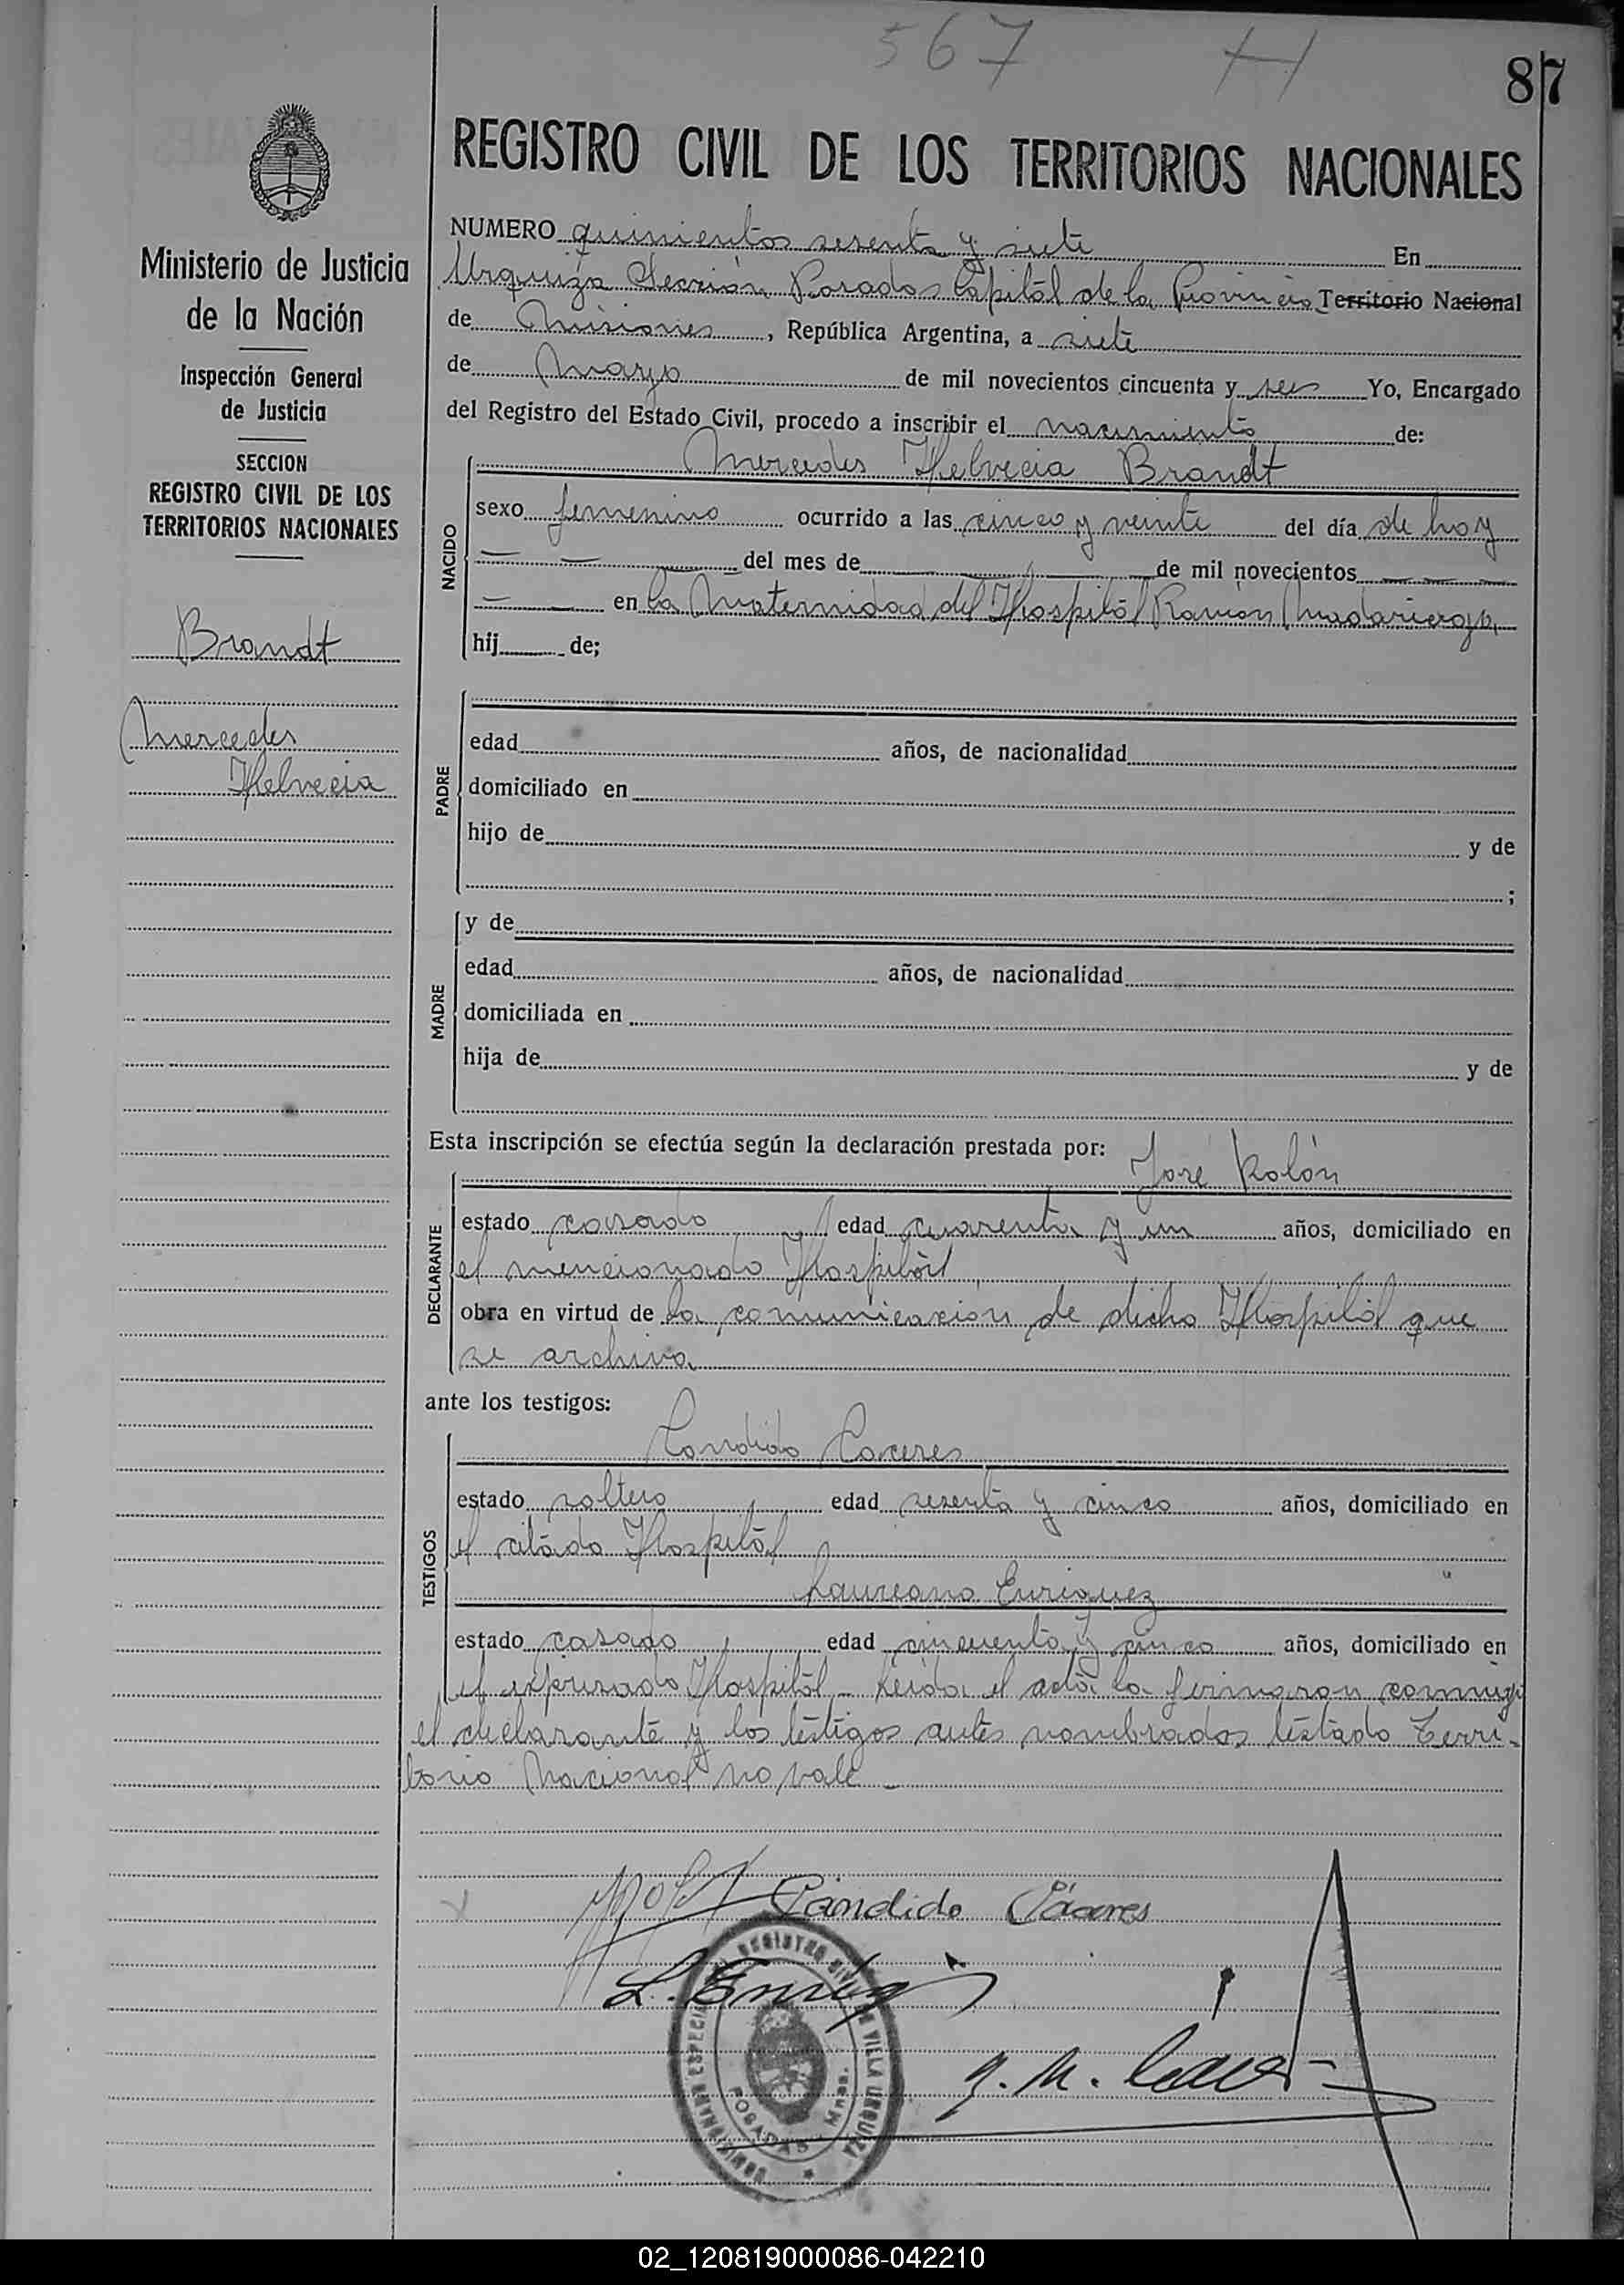 567 H
87
REGISTRO CIVIL DE LOS TERRITORIOS NACIONALES
Ministerio de Justicia
de la Nación
Inspección General
de Justicia
SECCION
REGISTRO CIVIL DE LOS
TERRITORIOS NACIONALES
Brandt
Mercedes
Helvecia
NUMERO quinientos sesenta y siete En
Urquiza Sección Posadas Capital de la Provincia Territorio Nacional
de Misiones, República Argentina, a siete
de Marzo de mil novecientos cincuenta y seis Yo, Encargado
del Registro del Estado Civil, procedo a inscribir el nacimiento de:
NACIDO
Mercedes Helvecia Brandt
sexo femenino ocurrido a las cinco y veinte del día de hoy
del mes de de mil novecientos
en la Maternidad del Hospital Ramón Madariaga
hij de;
PADRE
edad años, de nacionalidad
domiciliado en
hijo de y de
;
MADRE
y de
edad años, de nacionalidad
domiciliada en
hija de y de
Esta inscripción se efectúa según la declaración prestada por:
DECLARANTE
José Kolón
estado casado edad cuarenta y un años, domiciliado en
el mencionado Hospital
obra en virtud de la comunicación de dicho Hospital que
se archiva
ante los testigos:
TESTIGOS
Candido Caceres
estado soltero, edad sesenta y cinco años, domiciliado en
el citado Hospital
Laureano Enriquez
estado casado, edad cincuenta y cinco años, domiciliado en
el expresado Hospital - Leida el acta la firmaron conmigo
el declarante y los testigos antes nombrados testado Terri-
torio Nacional no vale -
Cándido Cáceres
L. Enriq
REGISTRO CIVIL DE VILLA URQUIZA
POSADAS Mnes.
02_120819000086-042210